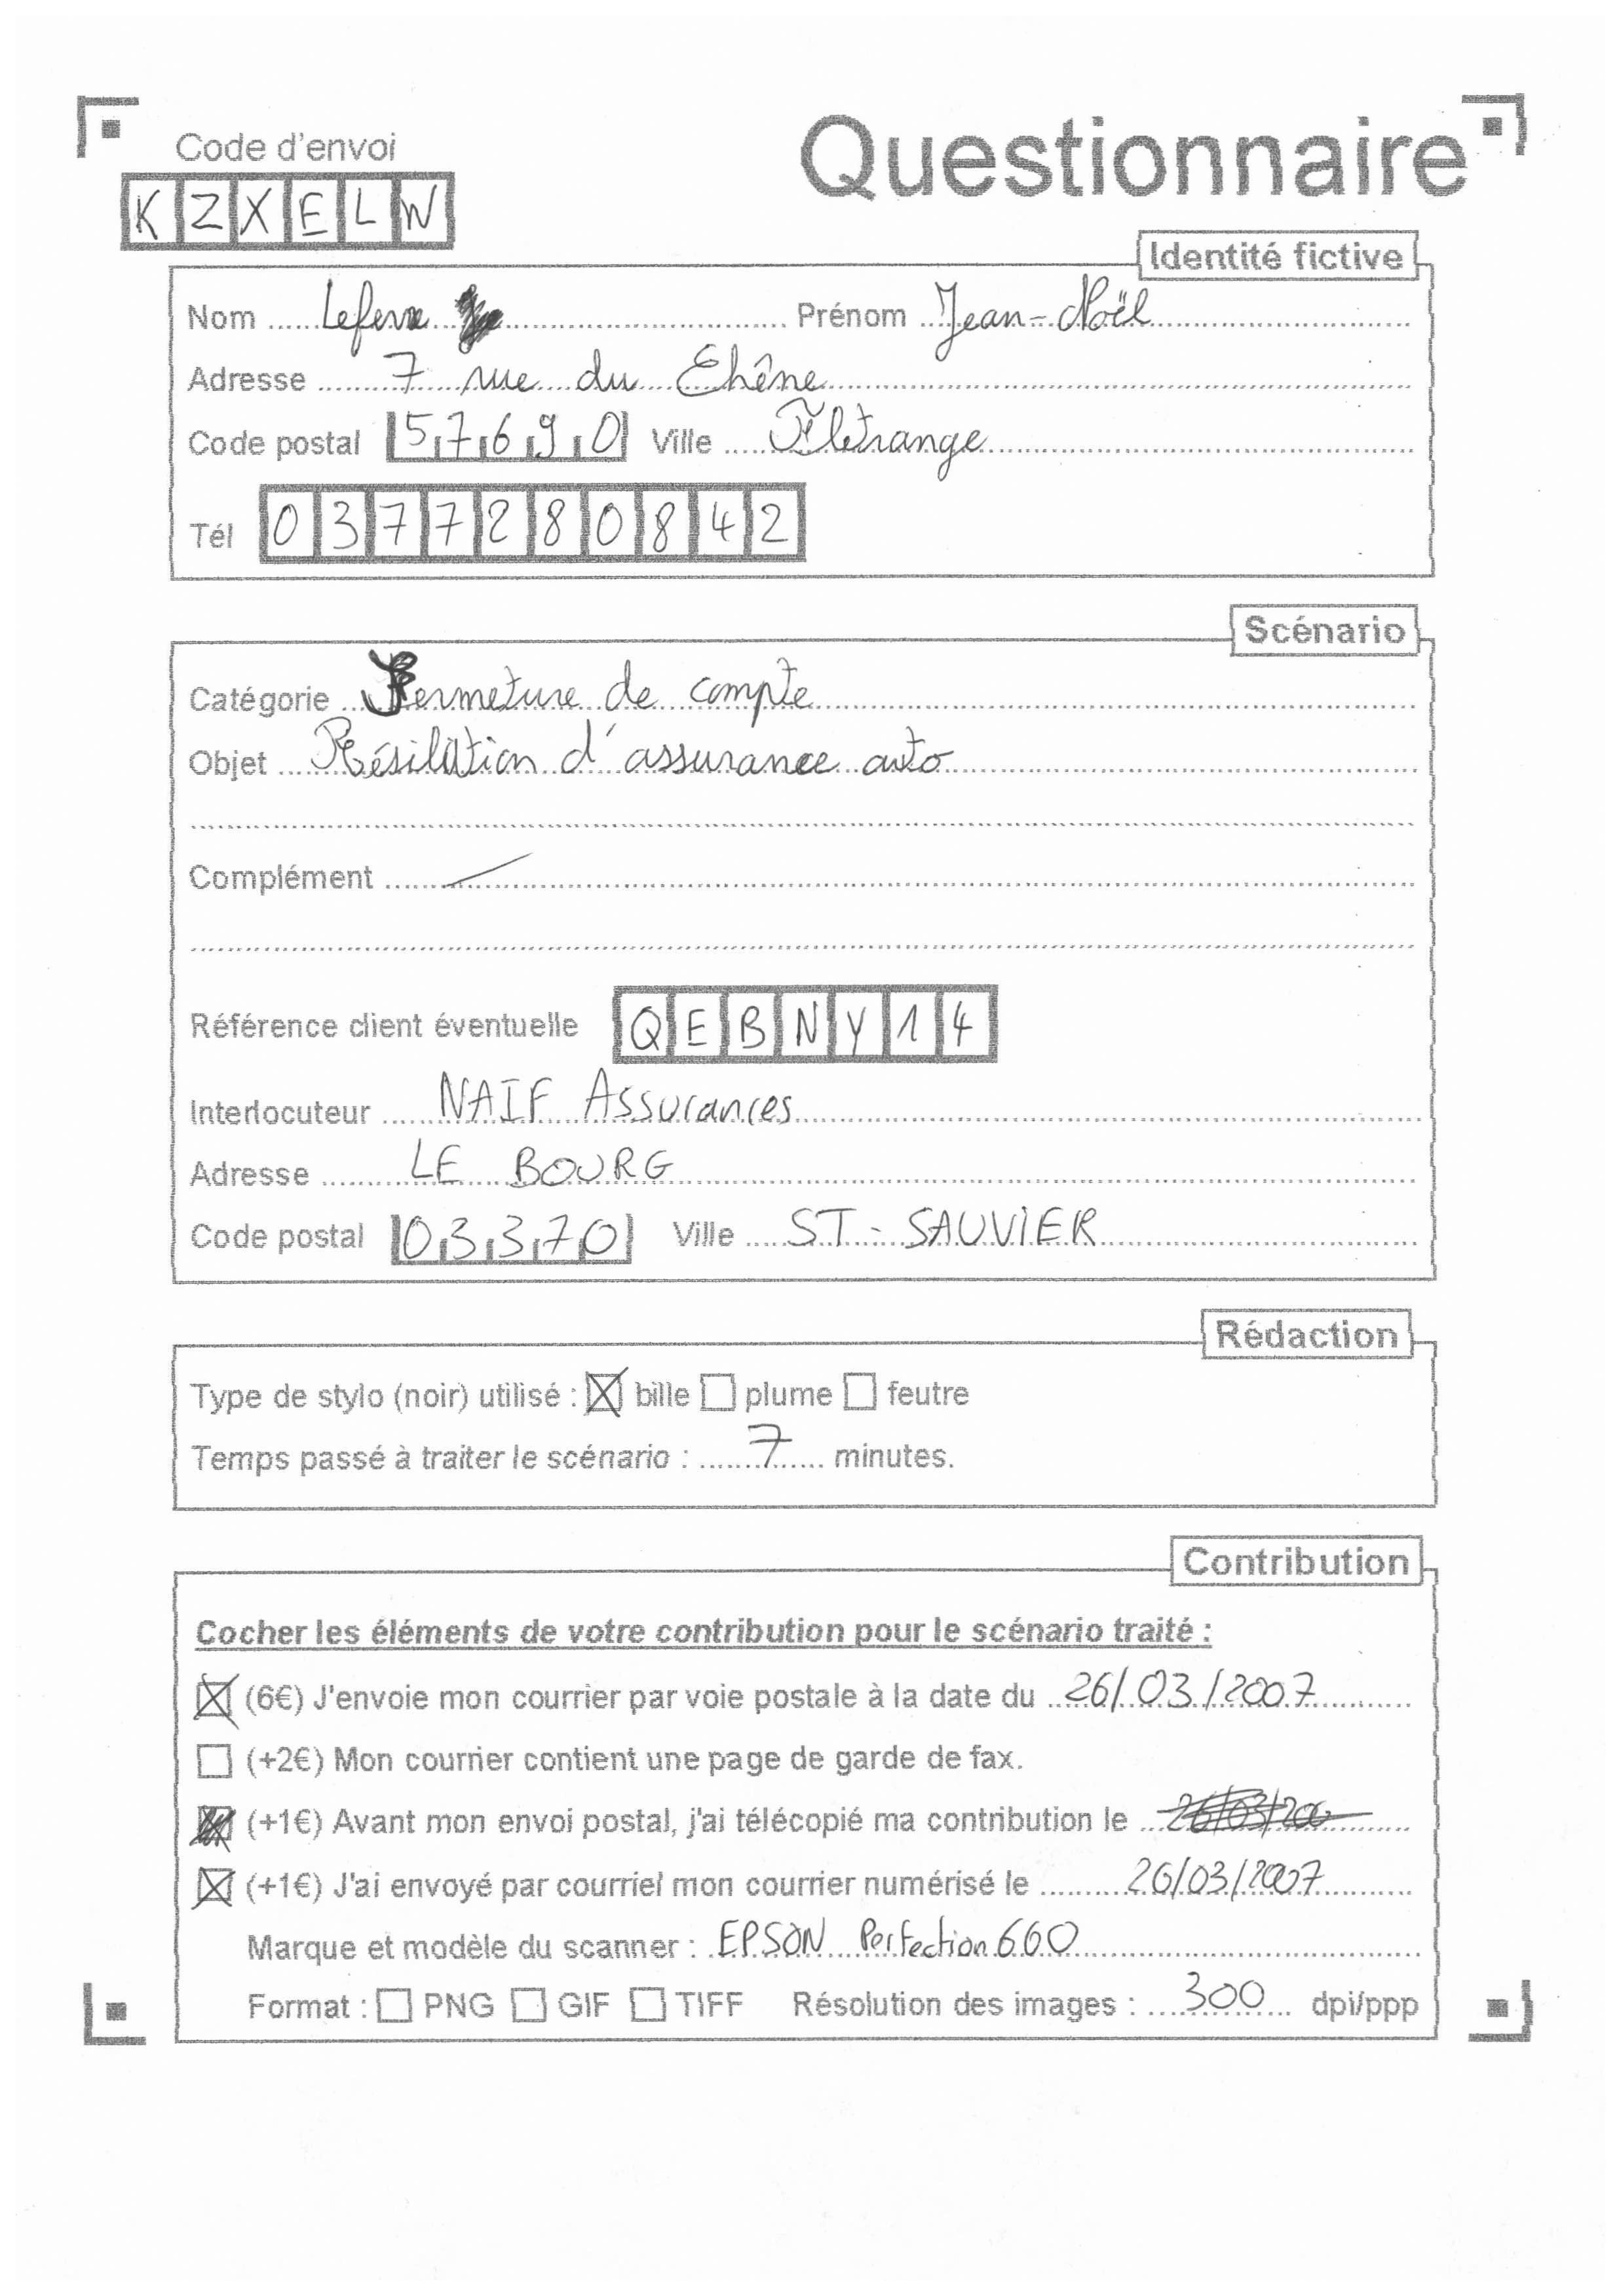 Code d'envoi
Questionnaire
K Z X E L W
Identité fictive
Nom Lefevre Prénom Jean-Noël
Adresse 7 rue du Chêne
Code postal 57690 Ville Flétrange
Tél 0377280842
Scénario
Catégorie Fermeture de compte
Objet Résiliation d'assurance auto
Complément
Référence client éventuelle QEBNY14
Interlocuteur NAIF Assurances
Adresse LE BOURG
Code postal 03370 Ville ST-SAUVIER
Rédaction
Type de stylo (noir) utilisé : bille plume feutre
Temps passé à traiter le scénario : 7 minutes.
Contribution
Cocher les éléments de votre contribution pour le scénario traité :
(6€) J'envoie mon courrier par voie postale à la date du 26/03/2007
(+2€) Mon courrier contient une page de garde de fax.
(+1€) Avant mon envoi postal, j'ai télécopié ma contribution le 26/03/200
(+1€) J'ai envoyé par courriel mon courrier numérisé le 26/03/2007
Marque et modèle du scanner : EPSON Perfection 660
Format : PNG GIF TIFF Résolution des images : 300 dpi/ppp